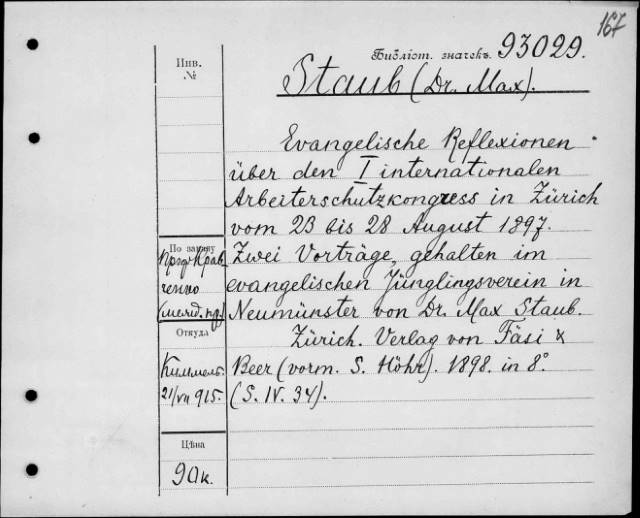 167
Библіот. значекъ. 93029.
Инв.
№
Staub (Dr. Max).
Evangelische Reflexionen
über den I internationalen
Arbeiterschutzkongress in Zürich
vom 23 bis 28 August 1897.
Zwei Vorträge, gehalten im
evangelischen Jünglingsverein in
Neumünster von Dr. Max Staub.
Zürich. Verlag von Fäsi &
Beer (vorm. S. Höhr). 1898. in 8°
(S. IV. 34).
По заказу
Проф Крав
ченко
Откуда
Киммель.
21/VII 915.
Цѣна
90к.